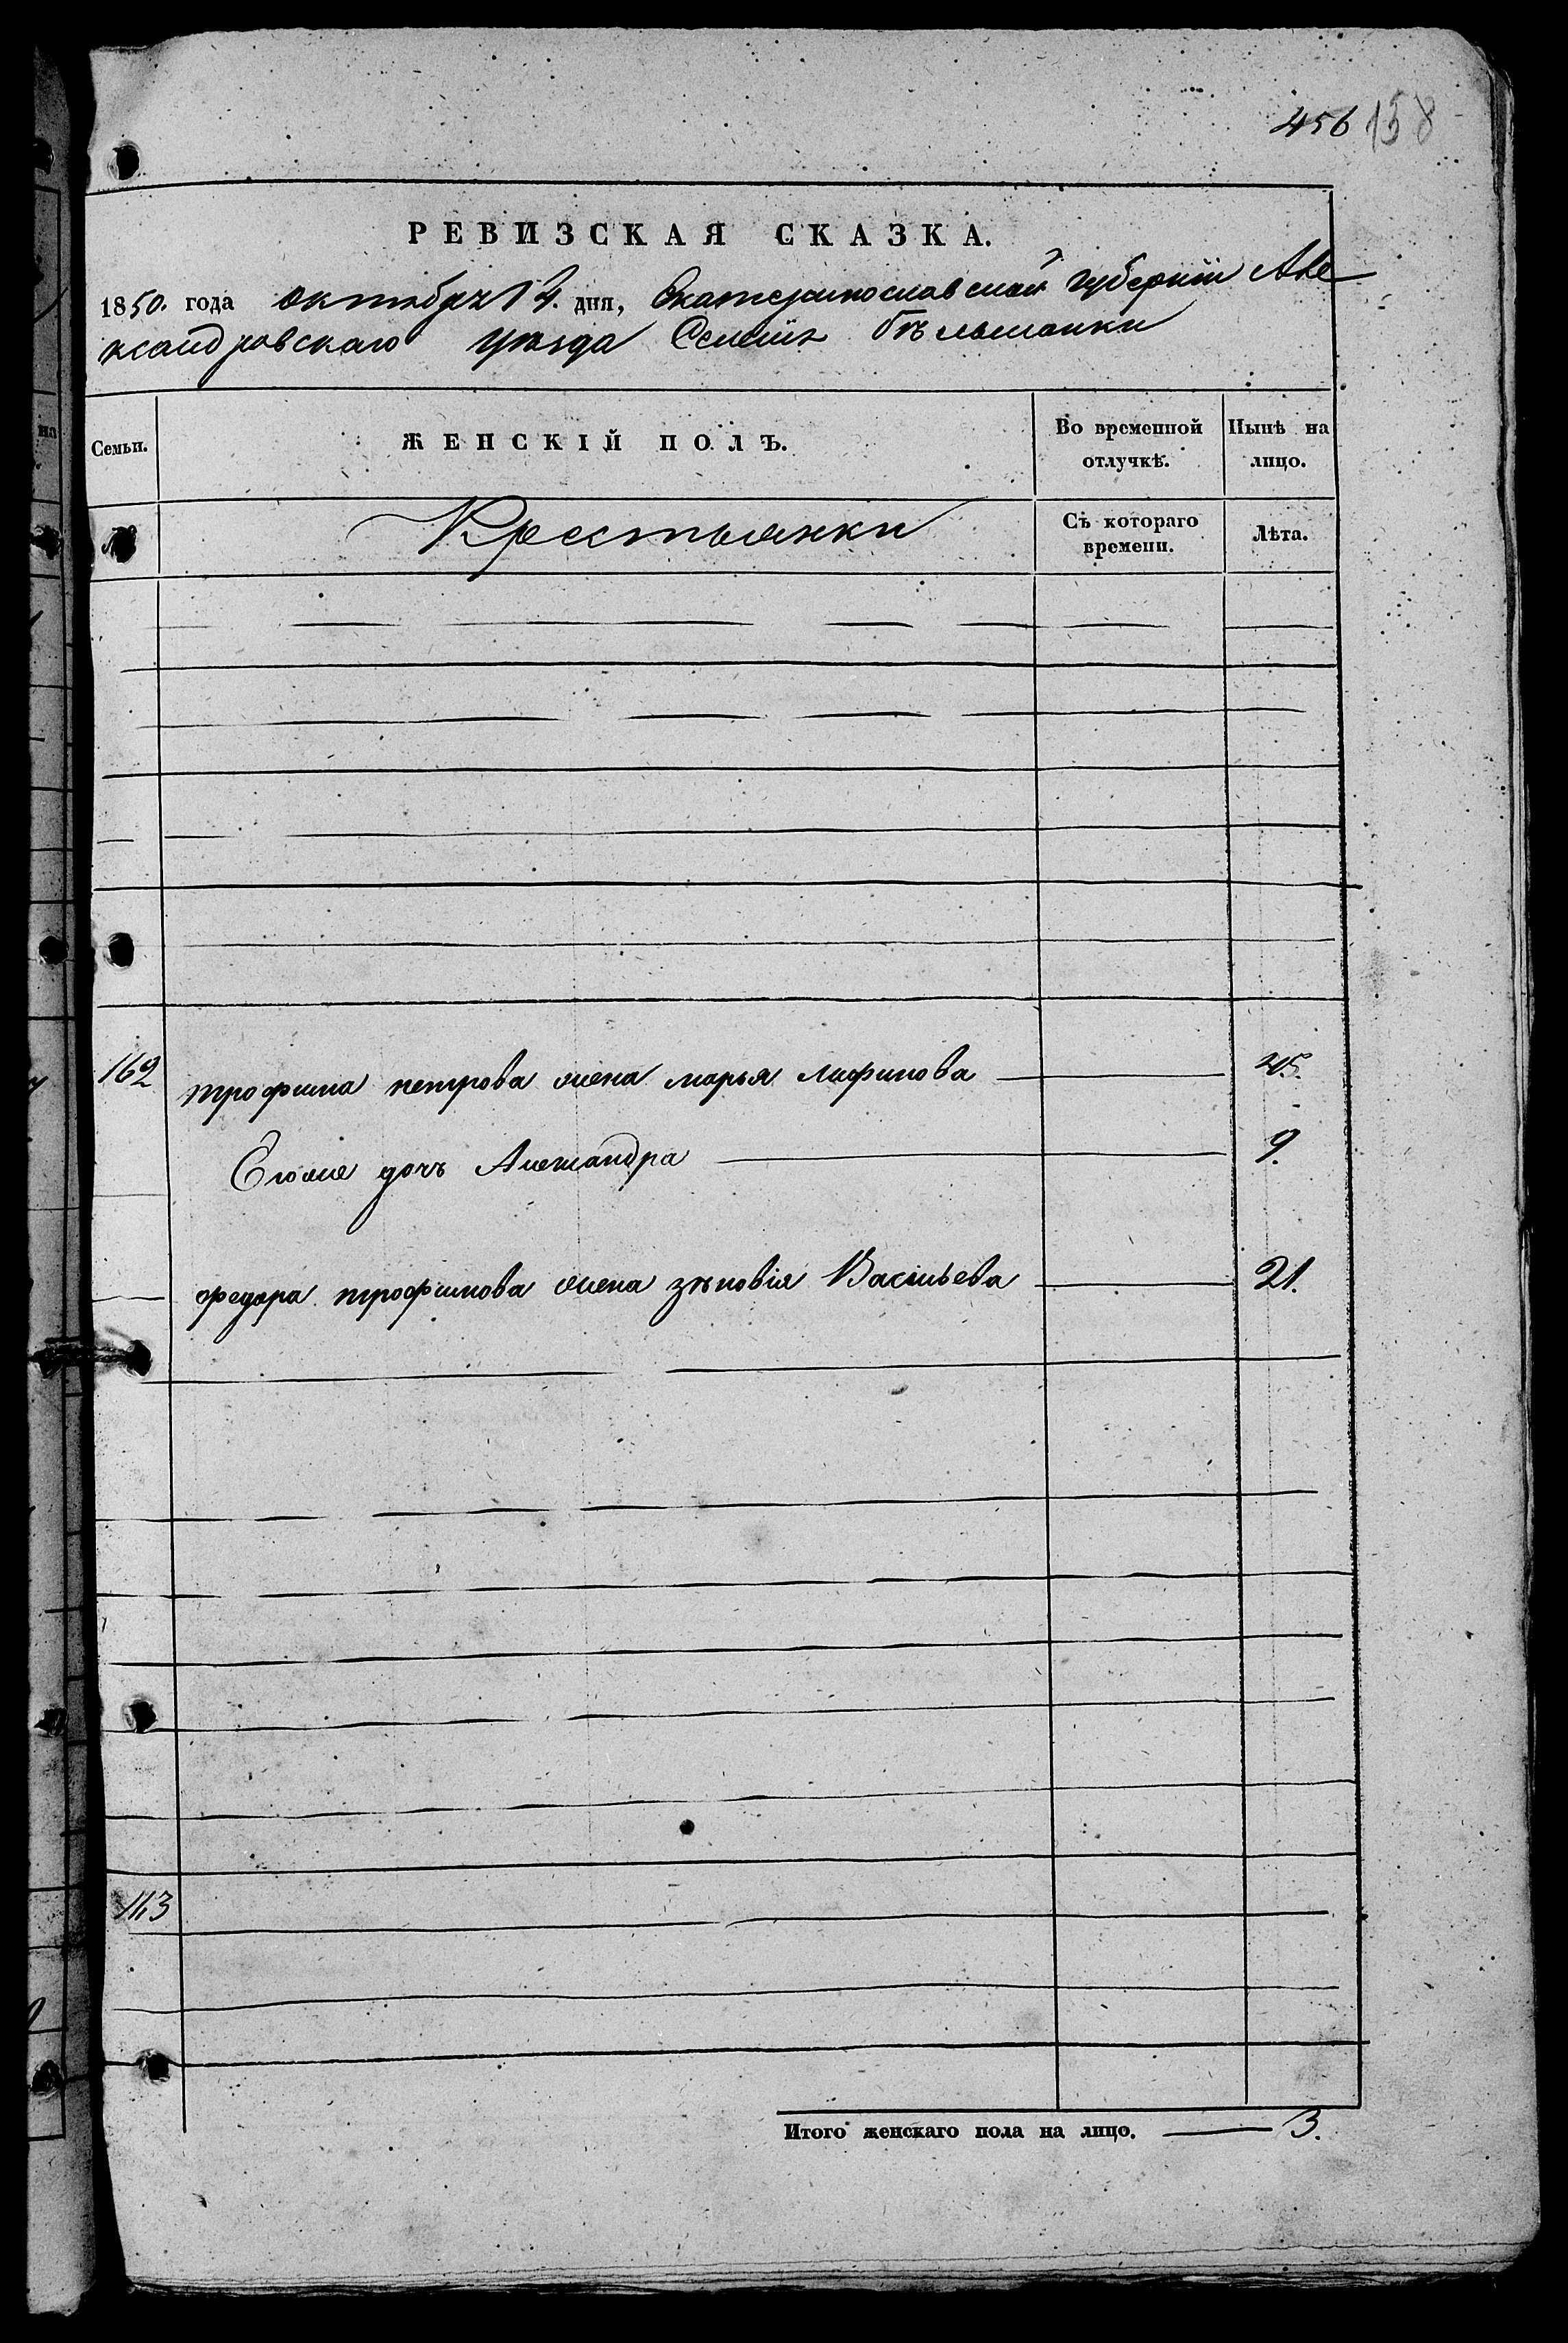 456 158
РЕВИЗСКАЯ СКАЗКА.
1850. года октября 14. дня, Екатеринославской губерніи Але
ксандровскаго уѣзда Селенія Бѣльманки
Семьи.
ЖЕНСКІЙ ПОЛЪ.
Во временной отлучкѣ.
Нынѣ на лицо.
№
Крестьянки
Съ котораго времени.
Лѣта.
162 трофима петрова жена марья 45.
Егоже дочь Александра 9.
федора трофимова жена зѣновія Васильева 21.
163
Итого женскаго пола на лицо. 3.